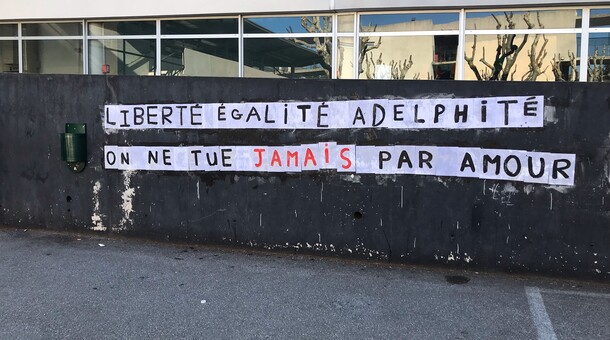 LIBERTÉ ÉGALITÉ ADELPHITÉ
ON NE TUE JAMAIS PAR AMOUR